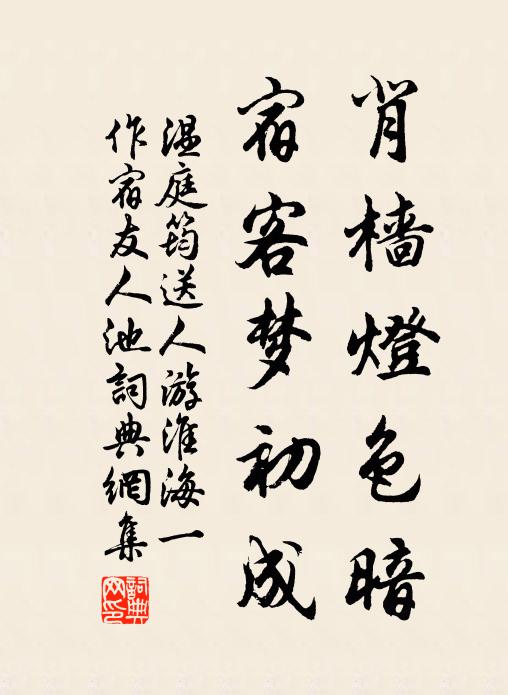 背檣燈色暗
宿客梦初成
温庭筠送人游淮海一
作宿友人池詞典網集